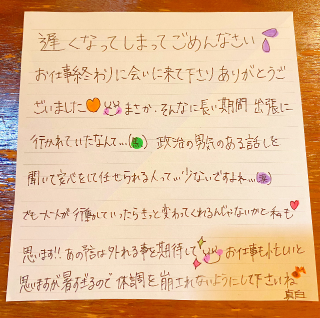 遅くなってしまってごめんなさい
お仕事終わりに会いに来て下さりありがとうご
ざいました まさか、そんなに長い期間 出張に
行かれていたなんて… 政治の男気のある話しを
聞いて安心をして任せられる人って…少ないですよね…
でも大人が行動していったらきっと変わってくれるんじゃないかと私も
思います!! あの話は外れる事を期待して お仕事も忙しいと
思いますが暑すぎるので 体調を崩されないようにして下さいね